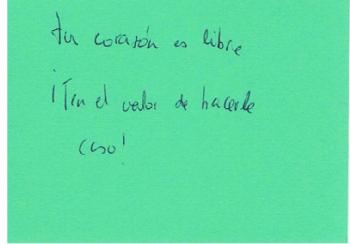 tu corazón es libre
¡Ten el valor de hacerle
caso!